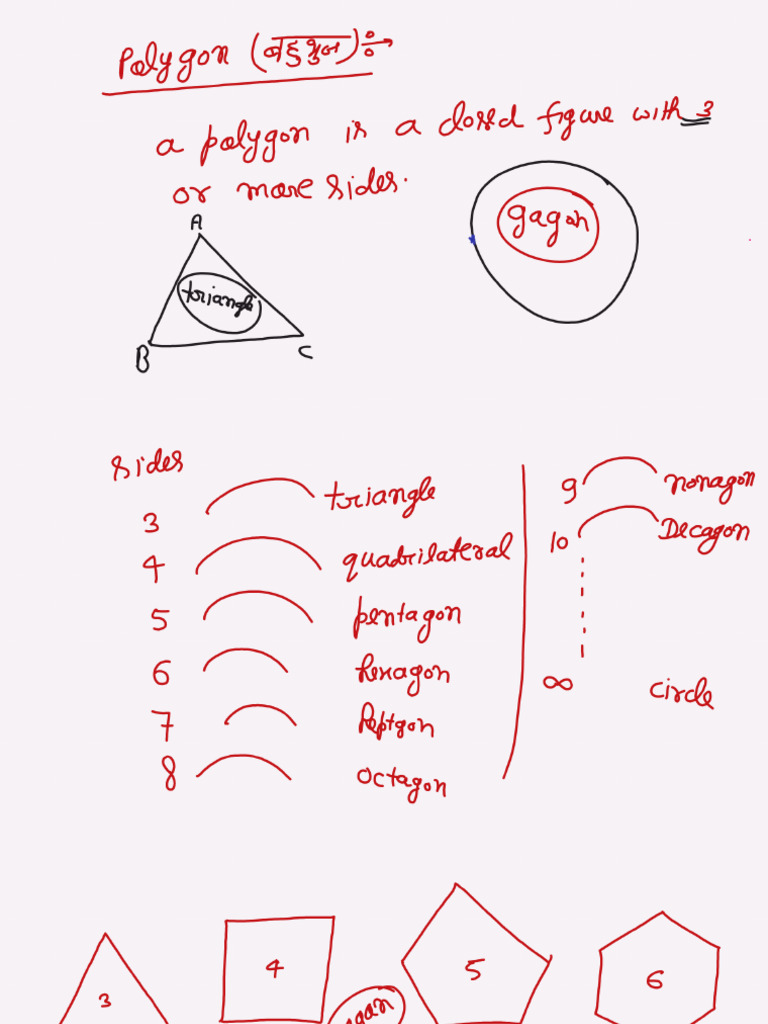 Polygon (बहुभुज) ÷→
a polygon is a closed figure with 3
or more sides.
gagan
A
triangle
B
C
sides
3 triangle
4 quadrilateral
5 pentagon
6 hexagon
7 Heptgon
8 octagon
9 nonagon
10 Decagon
∞ circle
3
4
5
6